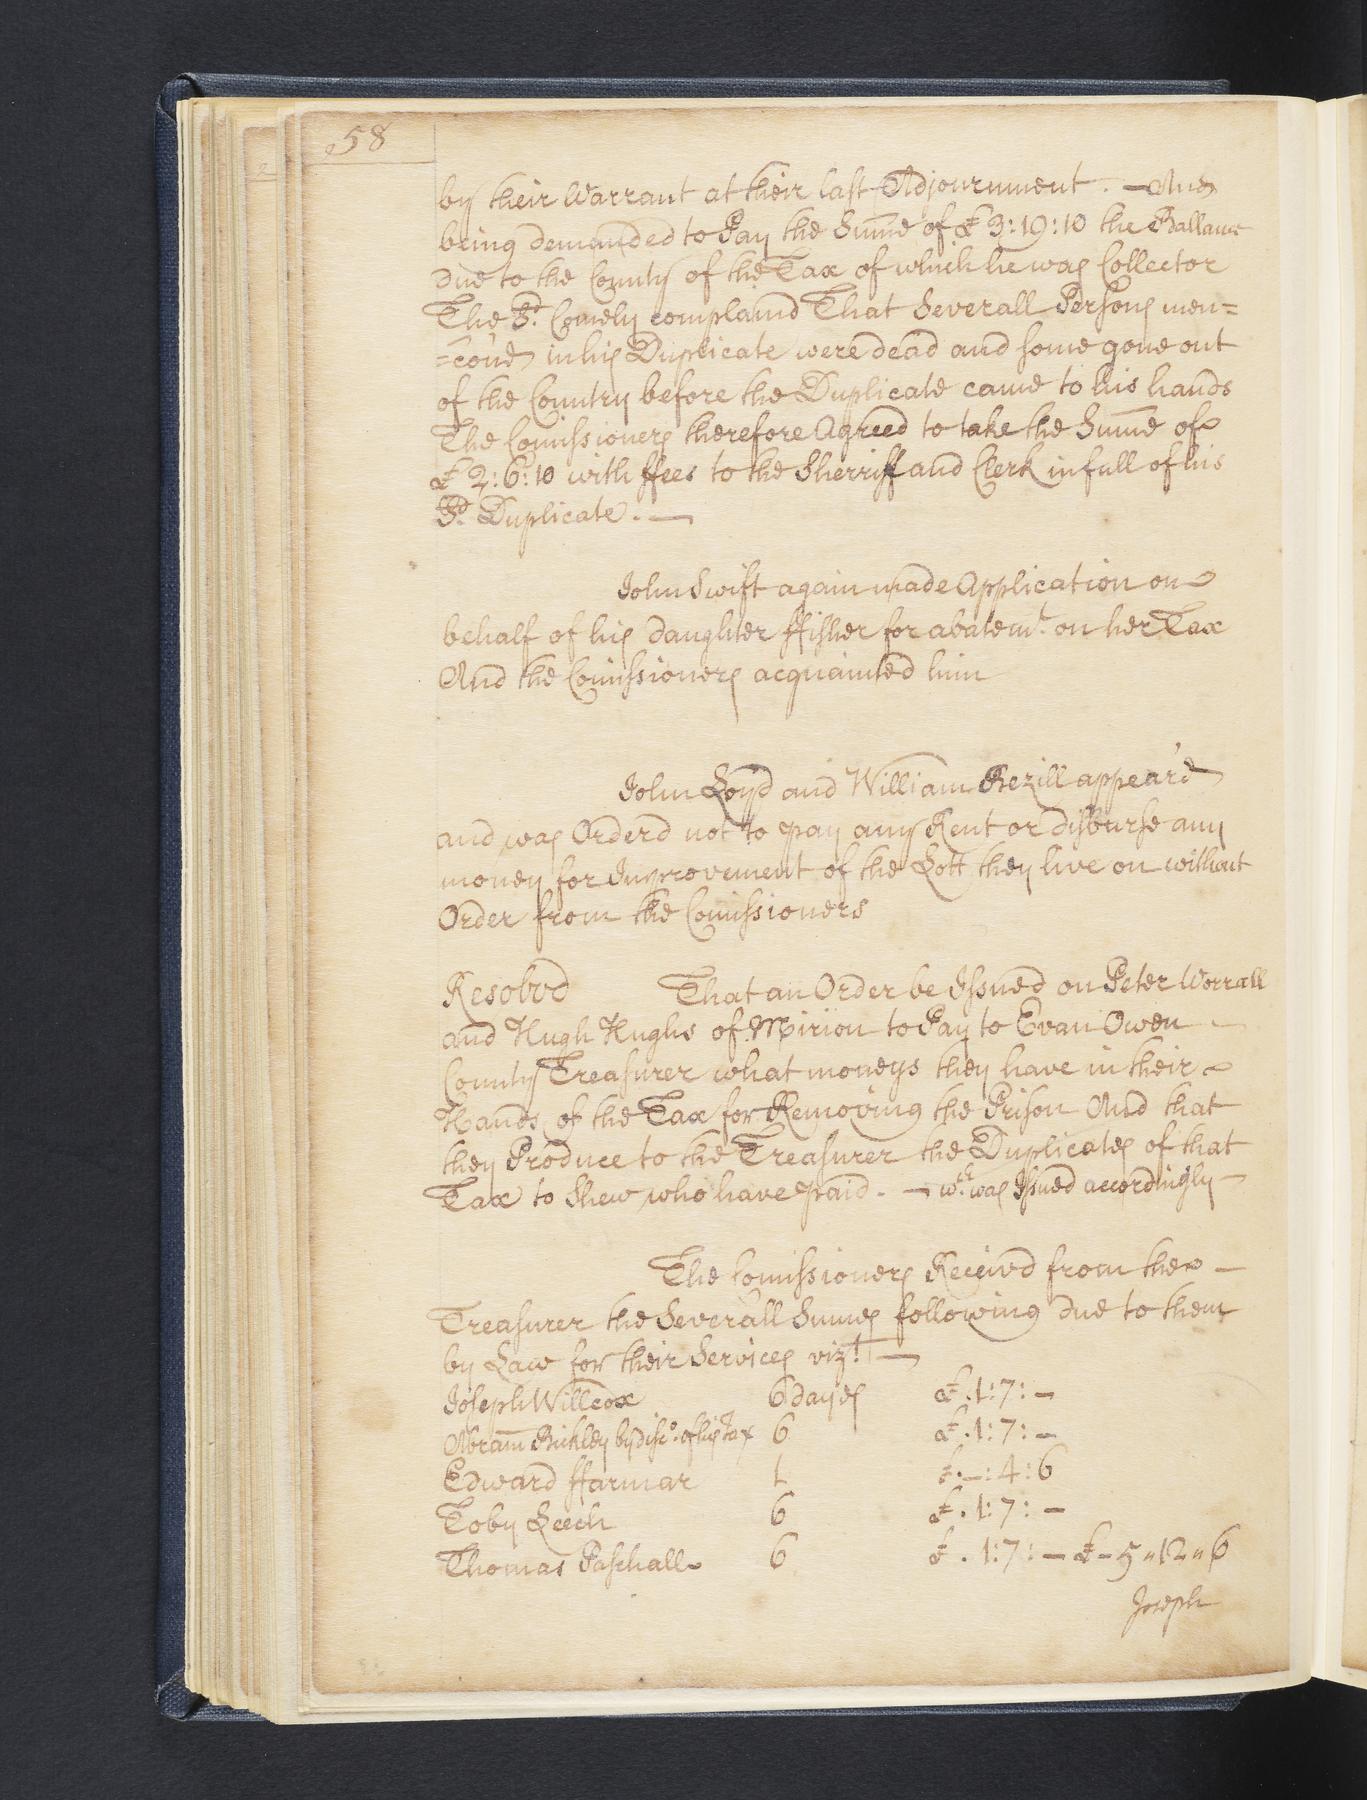 58
by their Warrant at their last Adjournment. — And
being demanded to Pay the Summe of £ 3:19:10 the Ballance
due to the County of the Tax of which he was Collector
The Sd. Comely complaind That Severall Persons men=
=coned in his Duplicate were dead and some gone out
of the Country before the Duplicate came to his hands
The Comissioners therefore Agreed to take the Summe of
£ 2:6:10 with ffees to the Sherriff and Clerk in full of his
Sd. Duplicate. —
John Swift again made Application on
behalf of his daughter ffisher for abatemt. on her Tax
And the Comissioners acquainted him
John Loyd and William Rezill appear'd
and was Orderd not to pay any Rent or disburse any
money for Improvement of the Lott they live on without
Order from the Comissioners
Resolvd That an Order be Issued on Peter Worrall
and Hugh Hughs of Mirion to Pay to Evan Owen
County Treasurer what moneys they have in their
Hands of the Tax for Removing the Prison And that
they Produce to the Treasurer the Duplicates of that
Tax to Shew who have paid. — wch. was Issued accordingly —
The Comissioners Receivd from the —
Treasurer the Severall Summes following due to them
by Law for their Services vizt. —
Joseph Willcox 6 dayes £.1:7:—
Abram Bickley by disco. of his Tax 6 £.1:7:—
Edward ffarmar 1 £.—:4:6
Toby Leech 6 £.1:7:—
Thomas Paschall 6 £.1:7:— £-5"12"6
Joseph